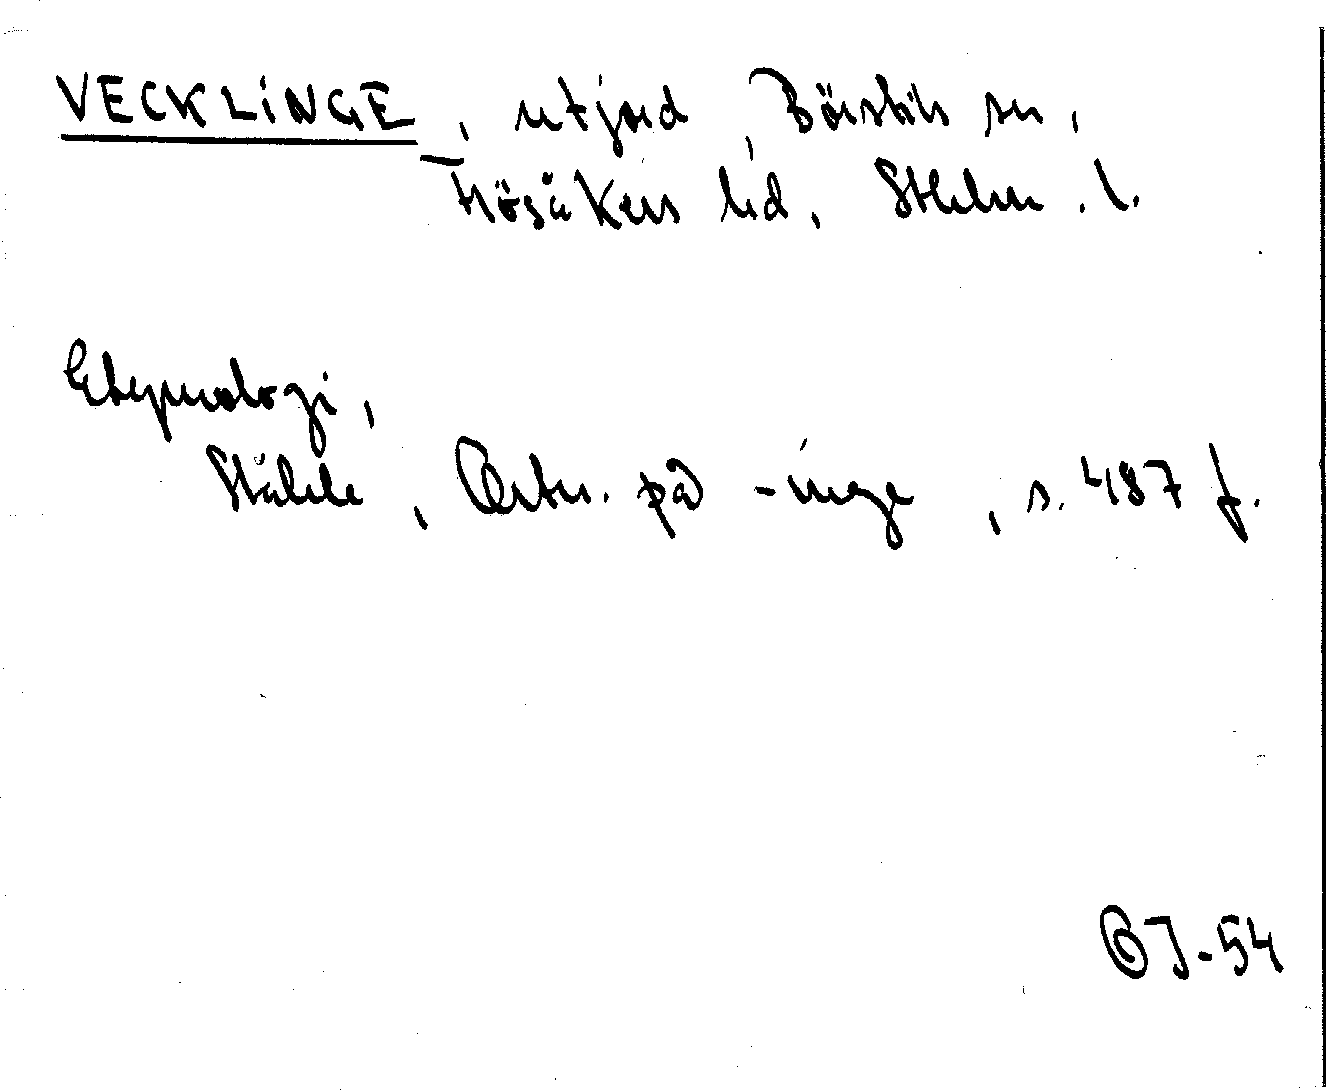 VECKLINGE, utjord, Börstils sn,
Frösåkers hd, Sthlms. l.
Etymologi,
Ståhle, Ortn. på -inge, s. 487 f.
OJ-54